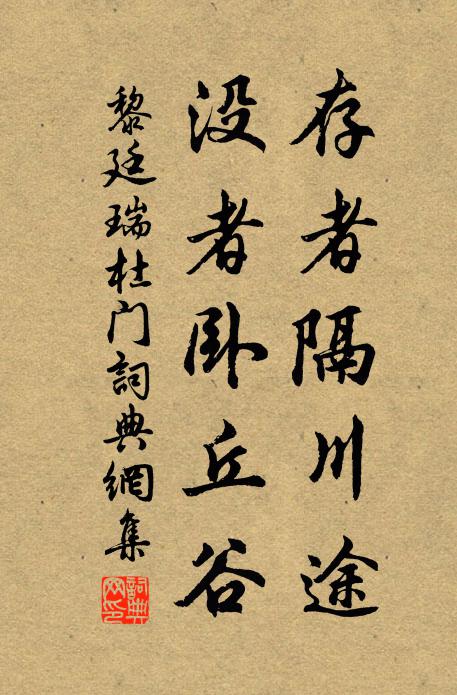 存者隔川途
没者卧丘谷
黎廷瑞杜门詞典網集
詞典
网印